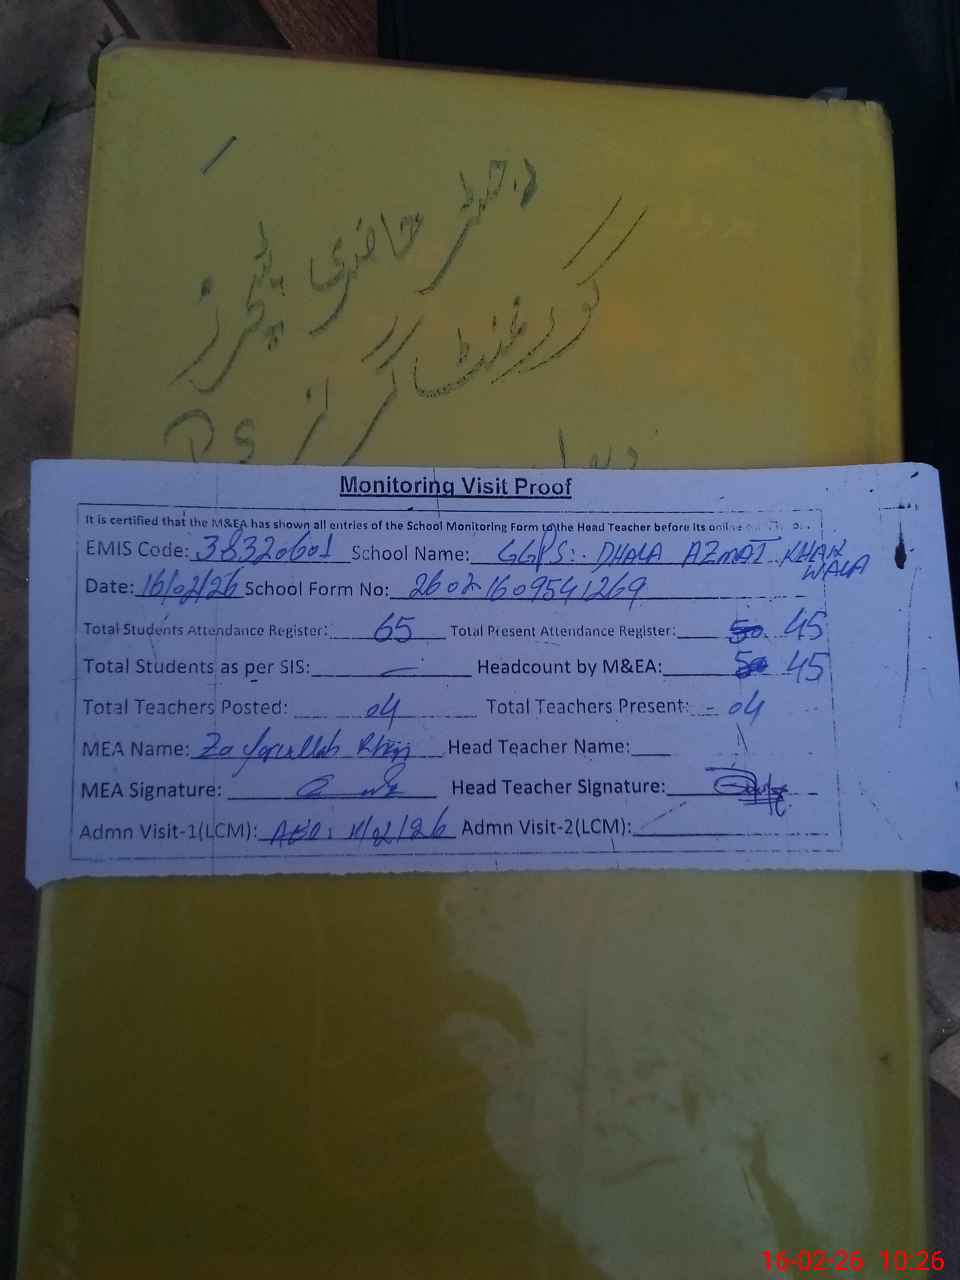 رجسٹر حاضری ٹیچرز
گورنمنٹ گرلز
PS
Monitoring Visit Proof
It is certified that the M&EA has shown all entries of the School Monitoring Form to the Head Teacher before its online
EMIS Code: 38320601 School Name: GGPS: DHALA AZMAT KHAN
WALA
Date: 16/02/26 School Form No: 2602-1609541269
Total Students Attendance Register: 65 Total Present Attendance Register: 50 45
Total Students as per SIS: — Headcount by M&EA: 50 45
Total Teachers Posted: 04 Total Teachers Present: 04
MEA Name: Zafarullah Khan Head Teacher Name:
MEA Signature: Head Teacher Signature:
Admn Visit-1(LCM): Admn Visit-2(LCM):
16-02-26 10:26